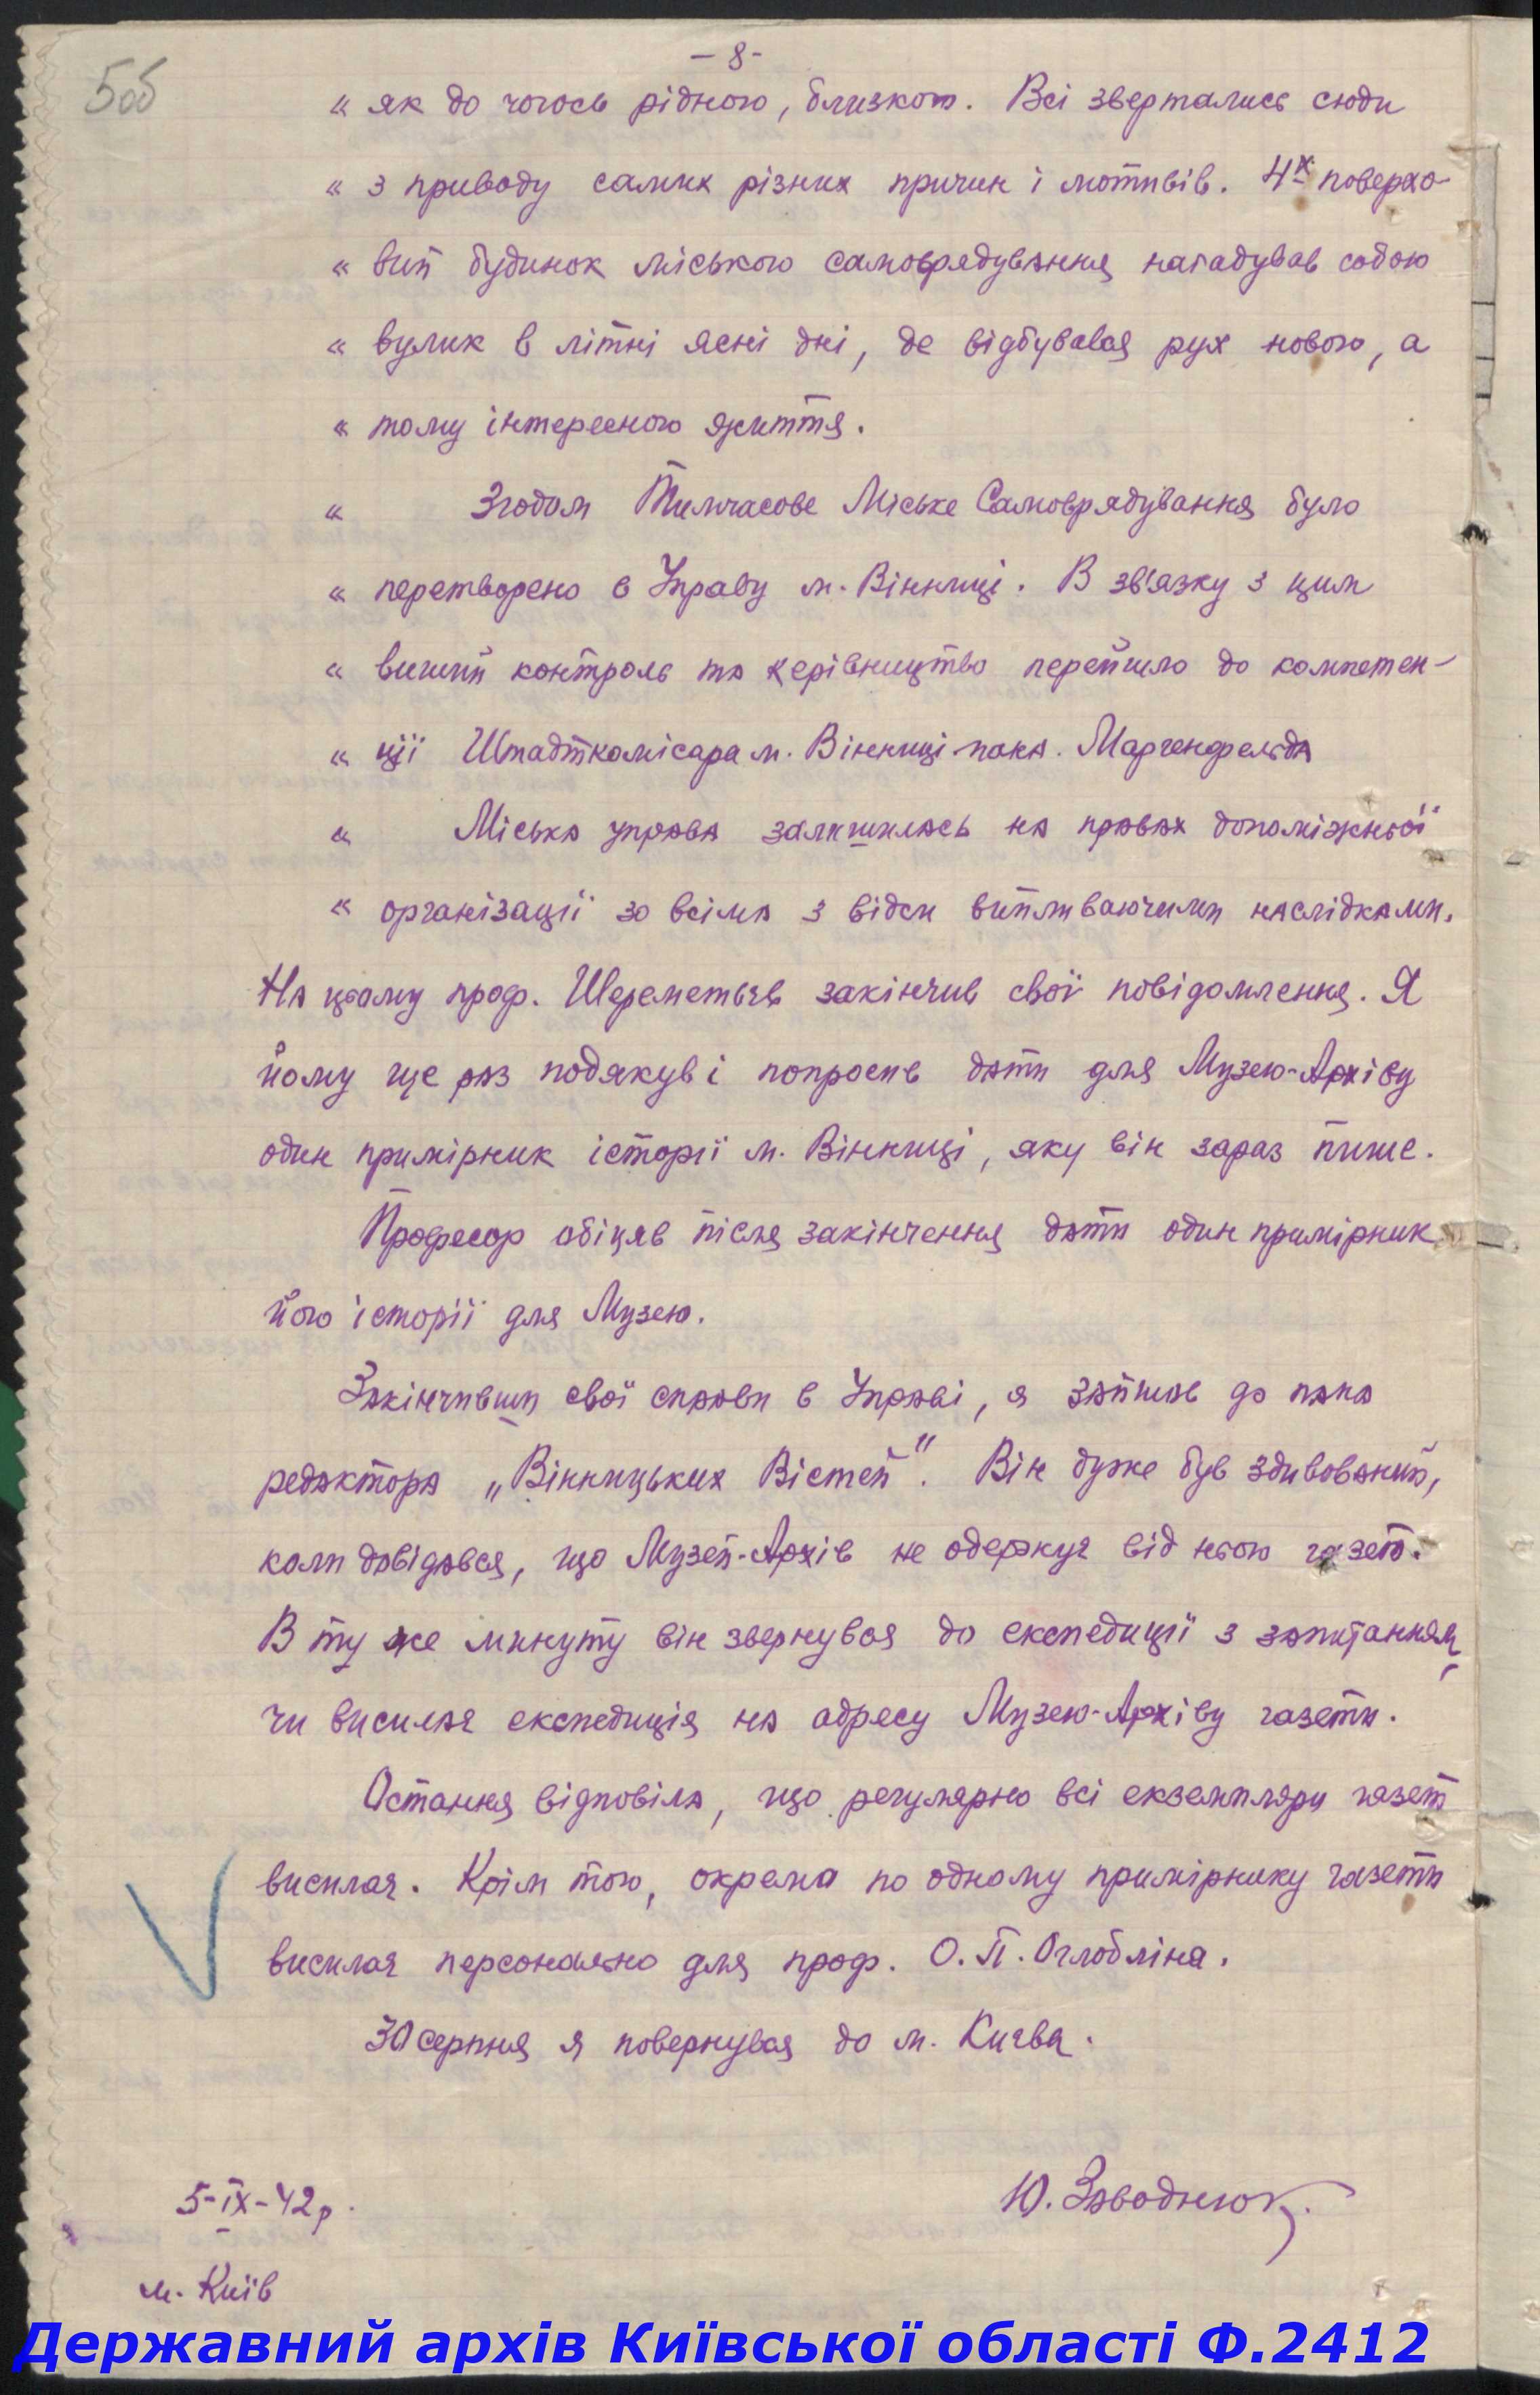 - 8 -
5об
" як до чогось рідного, близкого. Всі звертались сюди
" з приводу самих різних причин і мотивів. 4х поверхо-
" вий будинок міського самоврядування нагадував собою
" вулик в літні ясні дні, де відбувався рух нового, а
" тому інтересного життя.
" Згодом Тимчасове Міське Самоврядування було
" перетворено в Управу м. Вінниці. В зв'язку з цим
" вищий контроль та керівництво перейшло до компетен-
" ції Штадткомісара м. Вінниці пана. Маргенфельда
" Міська управа залишилась на правах допоміжньої
" організації зо всіма з відси випливаючими наслідками.
На цьому проф. Шереметьєв закінчив свої повідомлення. Я
йому ще раз подякув і попросив дати для Музею-Архіву
один примірник історії м. Вінниці, яку він зараз пише.
Професор обіцяв після закінчення дати один примірник
його історії для Музею.
Закінчивши свої справи в Управі, я зайшов до пана
редактора „Вінницьких Вістей". Він дуже був здивований,
коли довідався, що Музей-Архів не одержує від нього газет.
В ту же минуту він звернувся до експедиції з запитанням,
чи висилає експедиція на адресу Музею-Архіву газети.
Остання відповіла, що регулярно всі екземпляри газет
висилає. Крім того, окремо по одному примірнику газети
висилає персонально для проф. О. П. Оглобліна.
30 серпня я повернувся до м. Києва.
Ю. Заводнюк.
5-ІХ-42р.
м. Київ
Державний архів Київської області Ф.2412